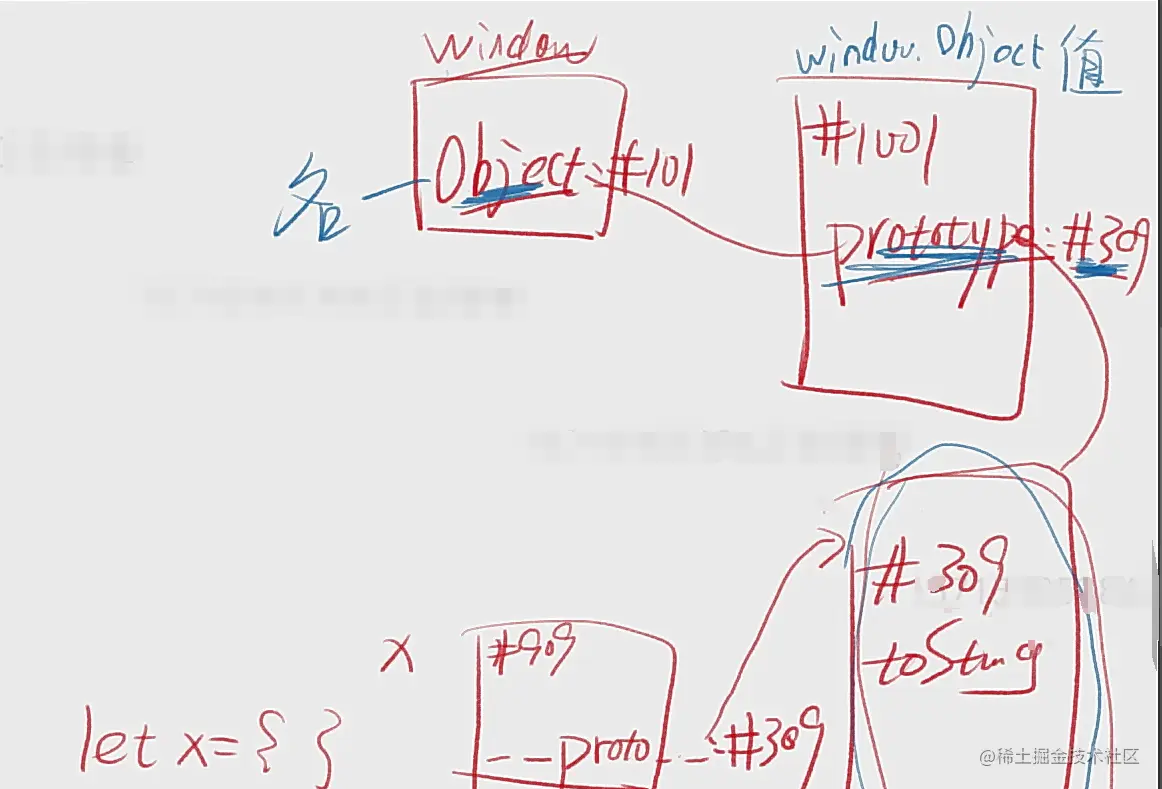 window
window.Object 值
名 Object:#101
#1001
prototype:#309
#309
toString
x
#909
let x={ }
__proto__:#309
@稀土掘金技术社区